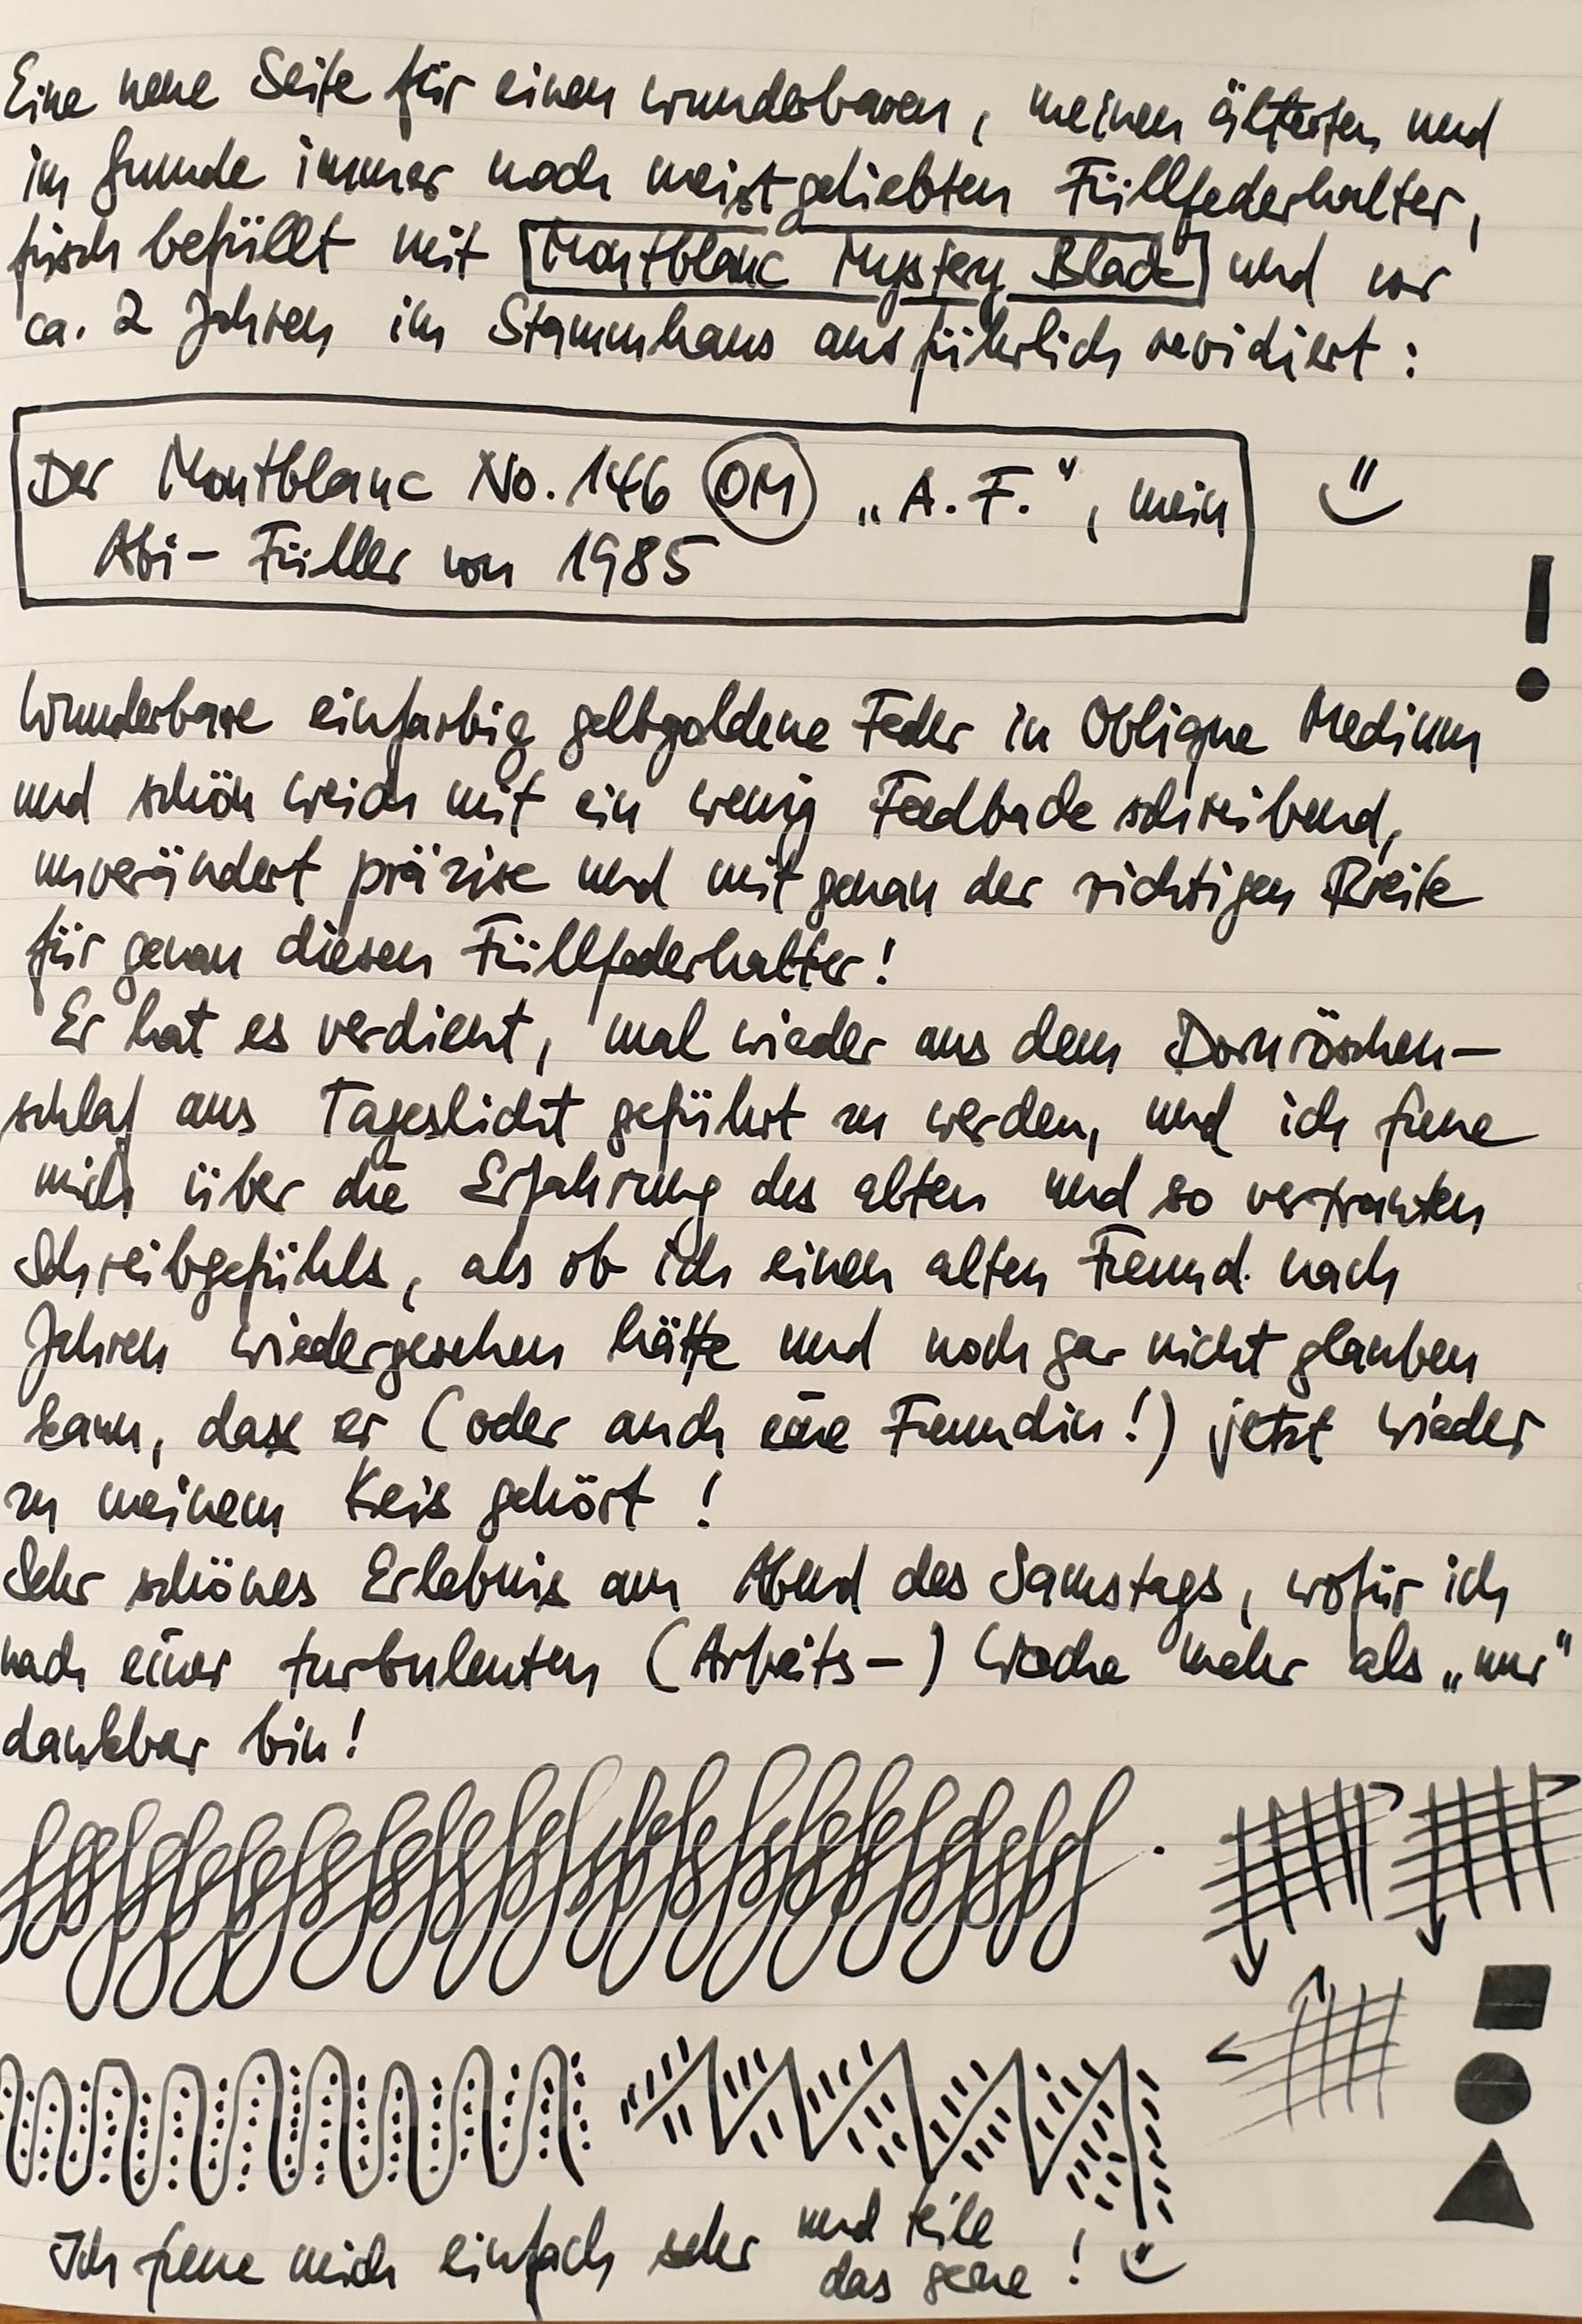 Eine neue Seite für einen wunderbaren, meinen ältesten und
im Grunde immer noch meistgeliebten Füllfederhalter,
frisch befüllt mit Montblanc Mystery Black und vor
ca. 2 Jahren im Stammhaus ausführlich revidiert:
Der Montblanc No. 146 OM „A.F.“, mein
Abi-Füller von 1985
Wunderbare einfarbig gelbgoldene Feder in Oblique Medium
und schön weich mit ein wenig Feedback schreibend,
unverändert präzise und mit genau der richtigen Breite
für genau diesen Füllfederhalter!
Er hat es verdient, mal wieder aus dem Dornröschen-
schlaf ans Tageslicht geführt zu werden, und ich freue
mich über die Erfahrung des alten und so vertrauten
Schreibgefühls, als ob ich einen alten Freund nach
Jahren wiedergesehen hätte und noch gar nicht glauben
kann, dass er (oder auch eine Freundin!) jetzt wieder
zu meinem Kreis gehört!
Sehr schönes Erlebnis am Abend des Samstags, wofür ich
nach einer turbulenten (Arbeits-) Woche mehr als „nur“
dankbar bin!
Ich freue mich einfach sehr und teile
das gerne!